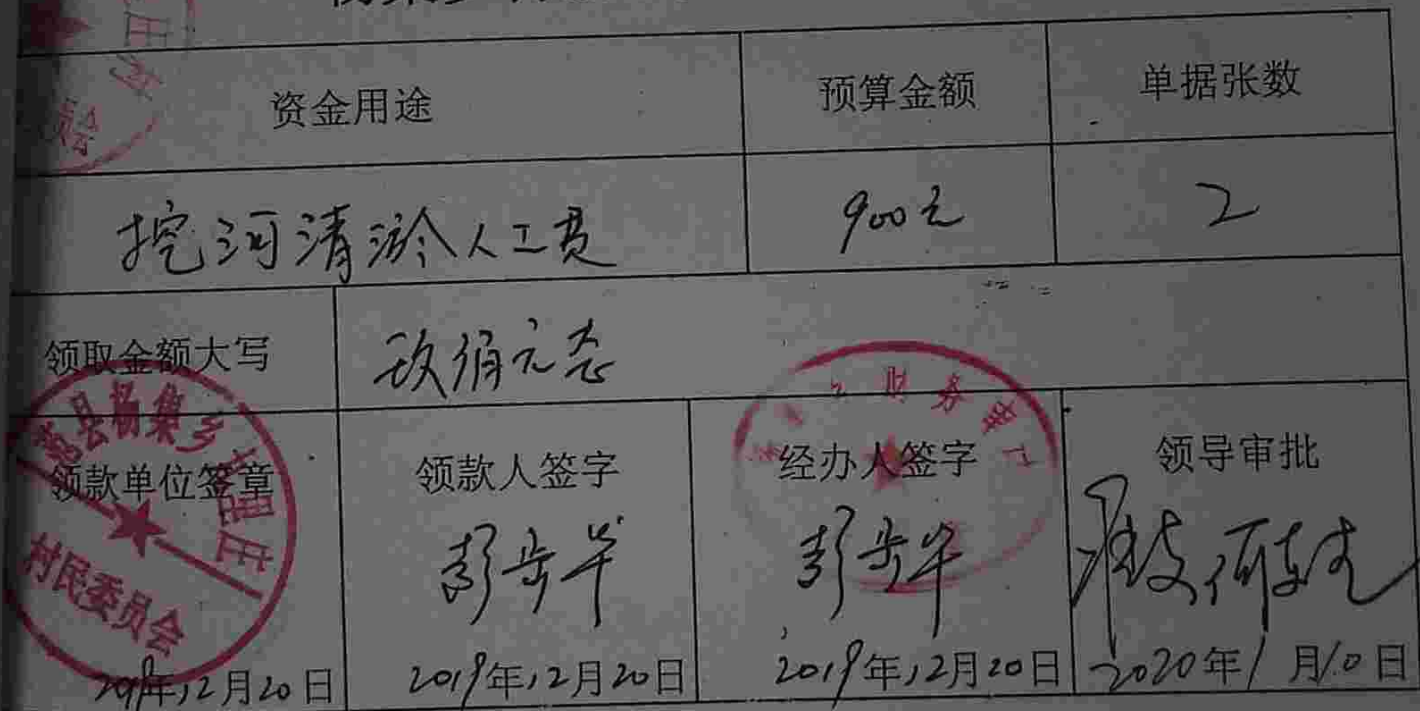 资金用途 预算金额 单据张数
挖河清淤人工费 900元 2
领取金额大写 玖佰元态
领款单位签章 领款人签字 经办人签字 领导审批
县杨集乡十里庄
村民委员会
财务
彭步华 彭步华 准支
2019年12月20日 2019年12月20日 2019年12月20日 2020年1月10日